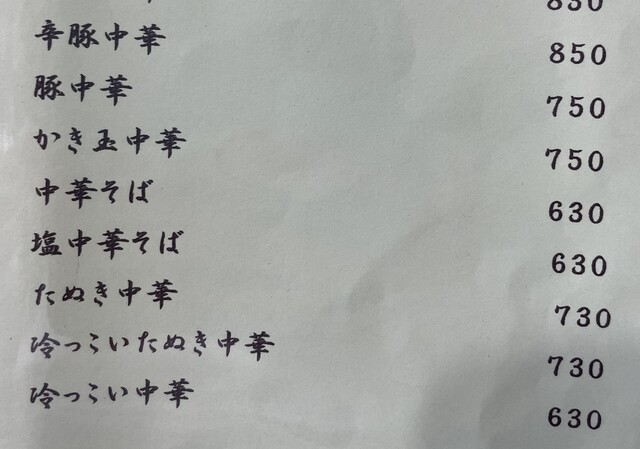 辛豚中華 850
豚中華 750
かき玉中華 750
中華そば 630
塩中華そば 630
たぬき中華 730
冷っこいたぬき中華 730
冷っこい中華 630